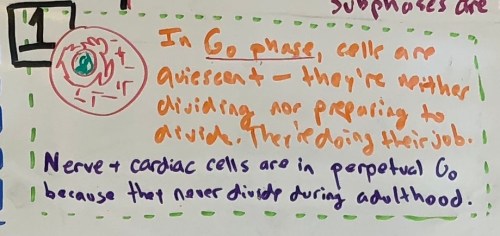 subphases are
1
In G₀ phase, cells are
quiescent – they're neither
dividing nor preparing to
divide. They're doing their job.
Nerve + cardiac cells are in perpetual G₀
because they never divide during adulthood.